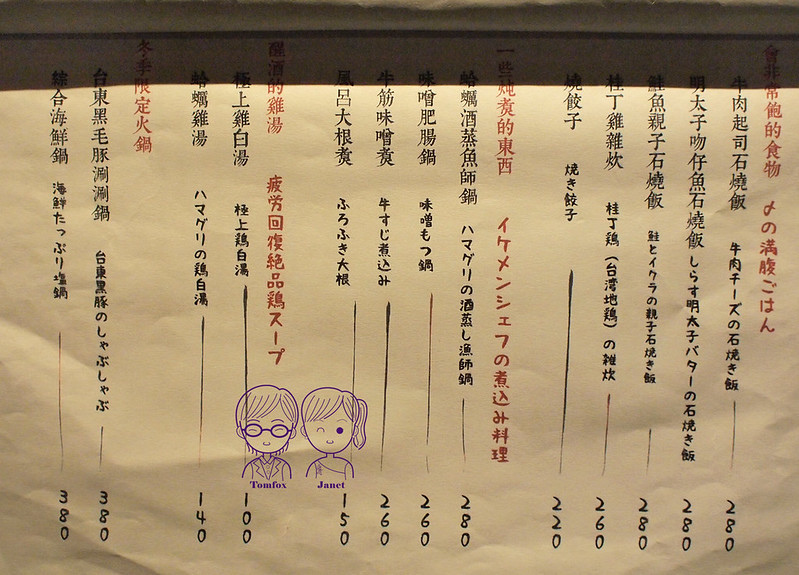 會非常飽的食物 〆の満腹ごはん
牛肉起司石燒飯 牛肉チーズの石焼き飯 280
明太子吻仔魚石燒飯 しらす明太子バターの石焼き飯 280
鮭魚親子石燒飯 鮭とイクラの親子石焼き飯 280
桂丁雞雜炊 桂丁鶏（台湾地鶏）の雑炊 260
燒餃子 焼き餃子 220
一些炖煮的東西 イケメンシェフの煮込み料理
蛤蠣酒蒸魚師鍋 ハマグリの酒蒸し漁師鍋 280
味噌肥腸鍋 味噌もつ鍋 260
牛筋味噌煮 牛すじ煮込み 260
風呂大根煮 ふろふき大根 150
醒酒的雞湯 疲労回復絶品鶏スープ
極上雞白湯 極上鶏白湯 100
蛤蠣雞湯 ハマグリの鶏白湯 140
冬季限定火鍋
台東黑毛豚涮涮鍋 台東黒豚のしゃぶしゃぶ 380
綜合海鮮鍋 海鮮たっぷり塩鍋 380
Tomfox Janet